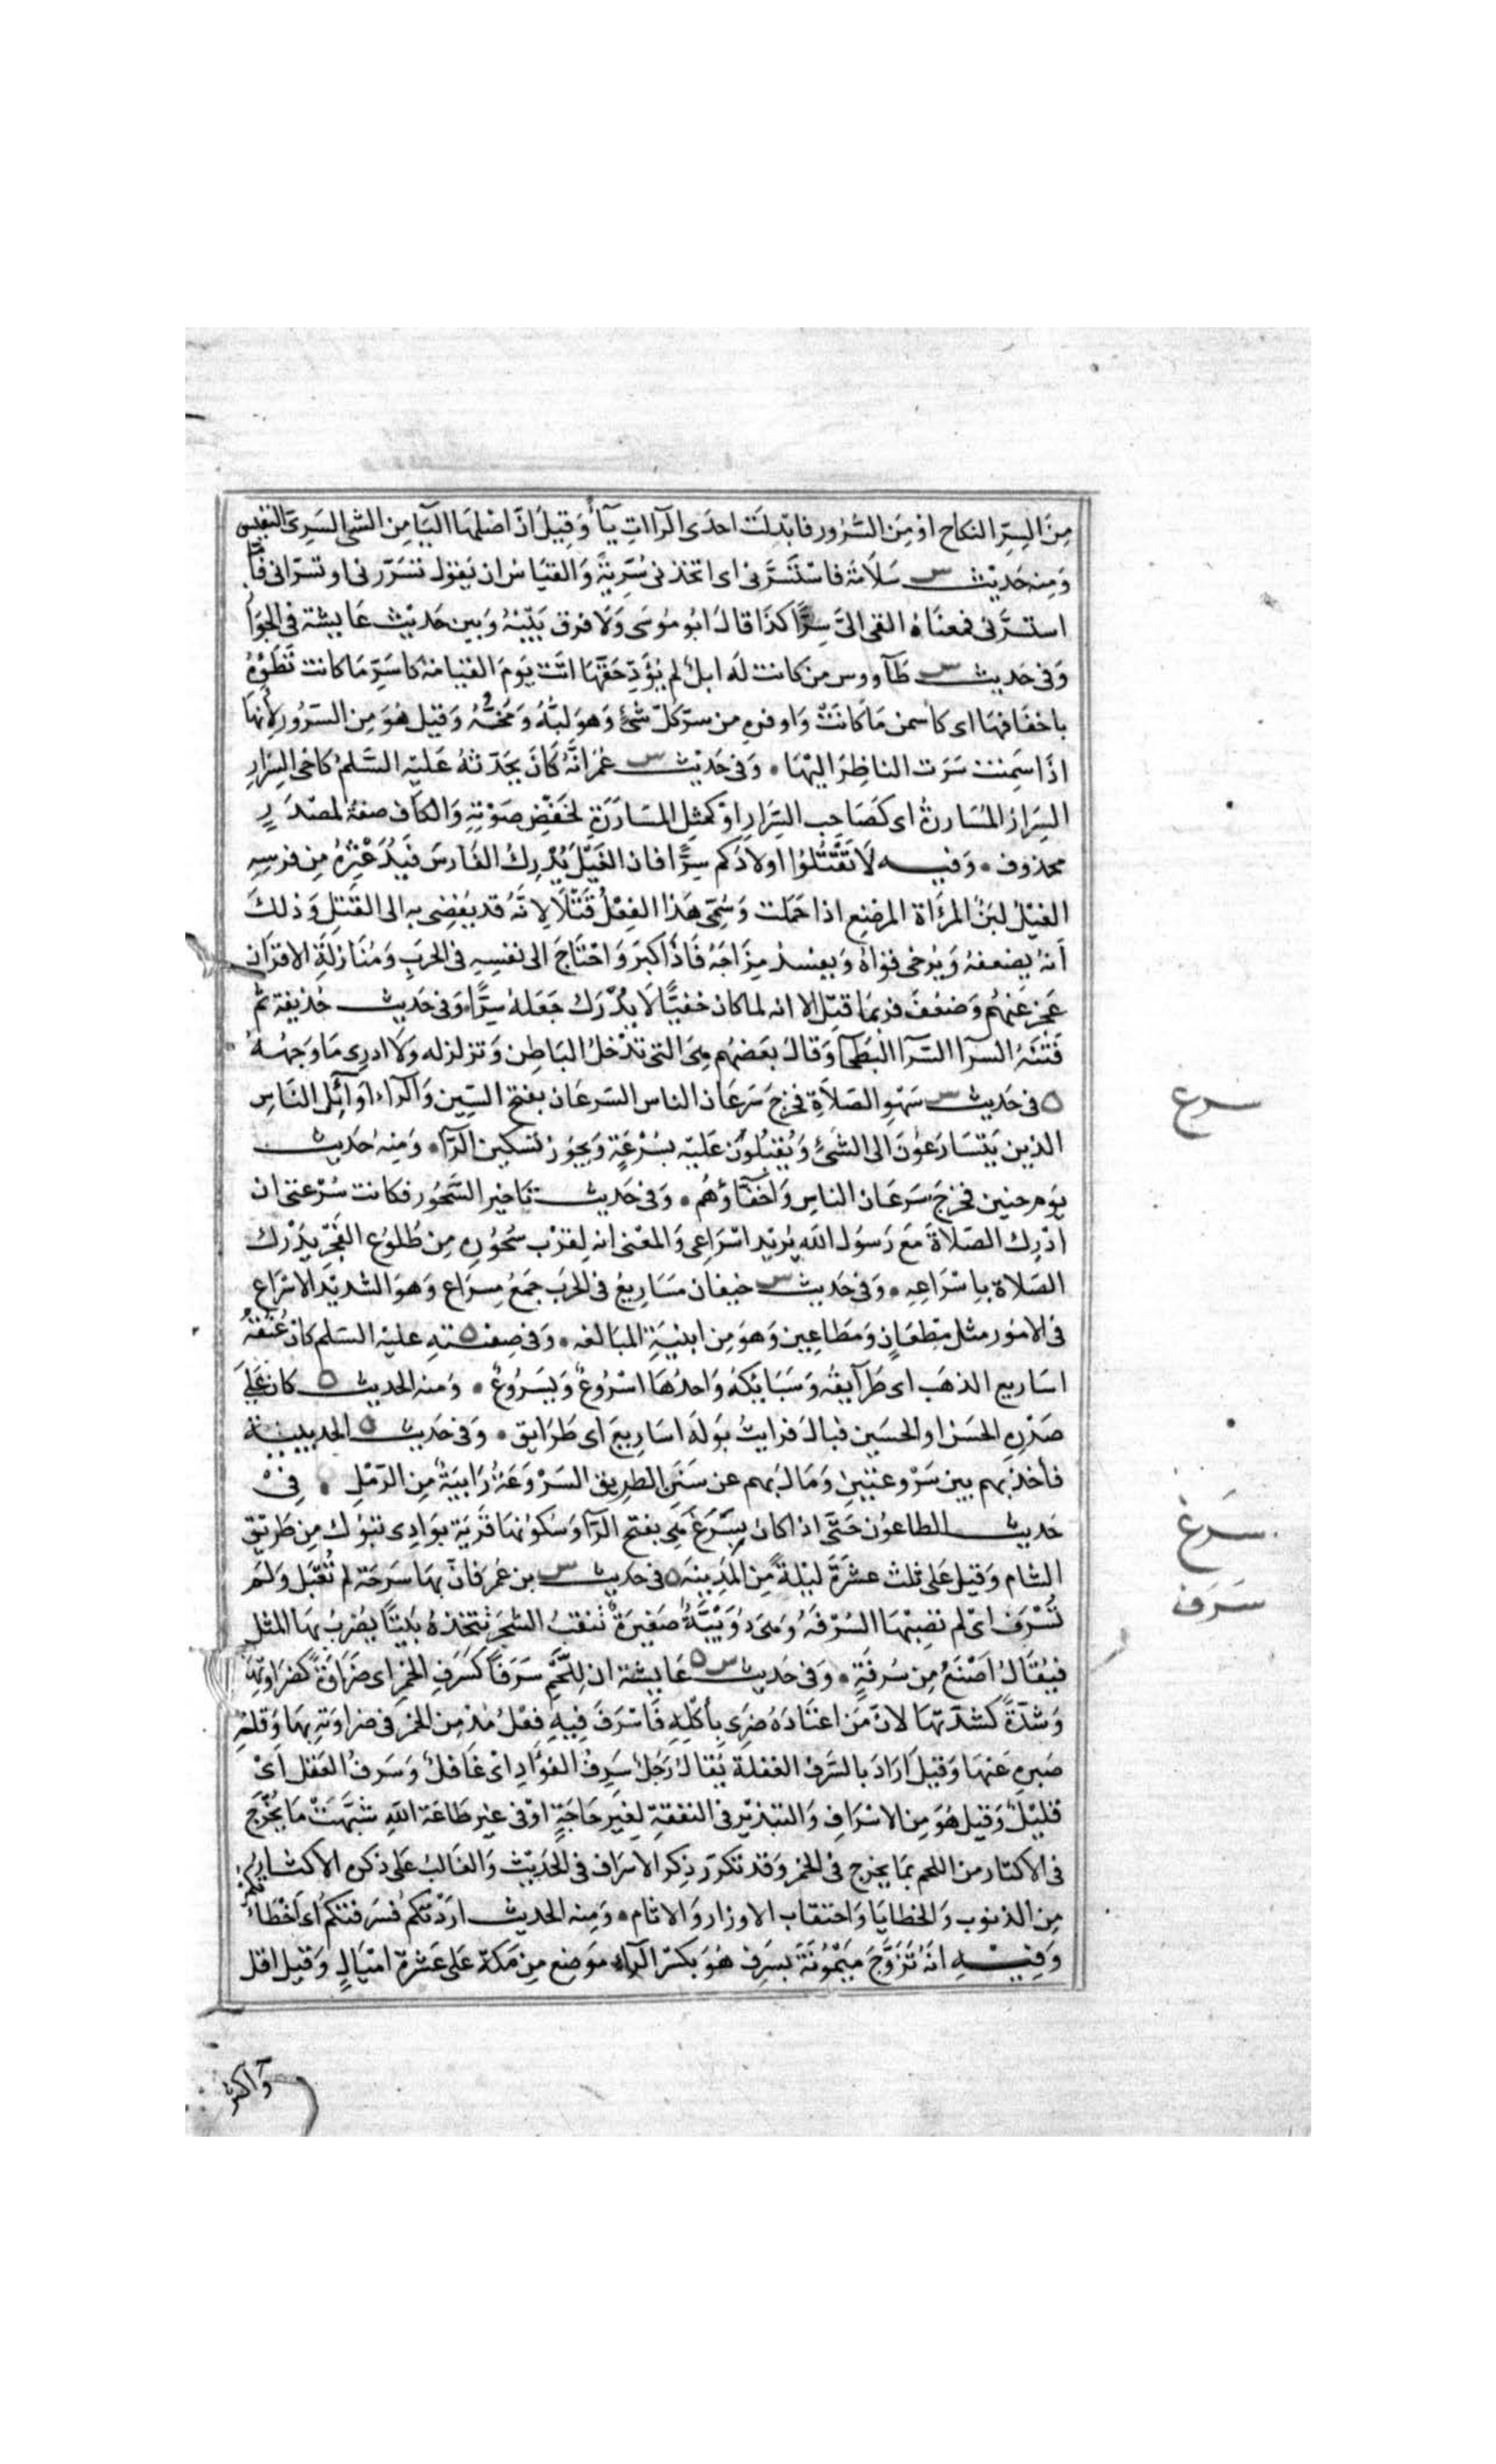 مِنَ السِّرِّ النكاح اوْ مِنَ السُّرُور فابْدِلَت احدَى الرآات يآءً وَقِيلَ انَّ اصْلهَا اليَآ مِن الشى السَرِىّ النفيس
وَمِنه حَدِيْث س سَلَامَة فَاسْتَسَرَّنى اى اتخذنى سُرِّيةً وَالقيَاسُ ان يَقول تَسَرّرَنى او تسَرّانى فأمّا
استسرَّنى فمعنَاهُ القى الىَّ سِرًّا كذَا قالَ ابُو مُوسَى وَلَا فرق بَيْنَهُ وَبين حَدِيْث عَايشة فى الجوَاز
وَفى حَدِيث س طَآووس من كانت لَه ابلٌ لم يُؤدِّ حَقّهَا اتَت يَومَ القيَامَة كاسَرِّ مَا كانت تَطَؤُهُ
باخفَافهَا اى كاسمن مَا كانَتْ وَاوفرِهِ من سِرِّ كلّ شَىْءٍ وَهوَ لبُّهُ وَمُخُّهُ وَقيل هُوَ مِن السّرُور لِأنهَا
اذَا سَمِنَت سَرَت الناظِرَ اليْهَا • وَفى حَدِيْث س عُمَر انَّهُ كَانَ يحَدّثهُ عَليْه السَّلمُ كاخى السِّرَارِ
السِّرَارُ المُسَارّةُ اى كصَاحِب السِّرَارِ اوْ كمِثْلِ المسَارَرَةِ لخَفْضِ صَوْتِهِ وَالكاَف صفةٌ لمصْدَرٍ
محذوف • وَفيه لَا تَقْتُلُوا اولادَكم سِرًّا فان الغَيْلَ يُدْرِكُ الفَارسَ فَيُدَعْثِرُهُ مِن فرسِهِ
الغَيْلُ لبَنُ المرْأة المرضِع اذا حَمَلت وَسُمّى هَذا الفِعْلُ قَتْلًا لِانّهُ قد يُفضِى به الى القَتِل وَذلكَ
أنهُ يضعفهُ وَيُرخى قواهُ وَيفسدُ مِزَاجَهُ فَاذَا كبَرَ وَاحْتَاجَ الى نفسِهِ فى الحَربِ وَمُنَازلَةِ الاقرَان
عَجزَ عَنهُم وَضعُفَ فربمَا قتِلَ الا انه لما كان خفيًّا لَا يُدْرَك جَعَلهُ سِرًّا • وَفى حَدِيث حُذيفة ثمّ
فِتْنَةُ السرآ السّرآ البَطحآ وَقالَ بَعضهُم هِىَ التى تدْخلُ البَاطِن وَتزلزله وَلَا ادرِى مَا وَجهُهُ
ه فى حَدِيث س سَهْوِ الصَلاَةِ فخرجَ سَرَعَان الناس السَرعَان بفتح السِّين وَالرآء اوَآئِل النَّاسِ
الذين يَتَسَارَعُونَ الى الشَىْءِ وَيُقبِلُونَ عَليْه بسُرْعَةٍ وَيجوز تسْكين الرّآء • وَمِنهُ حَدِيث
يَوم حنين فخرجَ سَرَعَان الناسِ وَاخفّآؤهُم • وَفى حَدِيث تَاخير السَّحُور فكانت سُرْعتى ان
ادْرِك الصَلاةَ مَع رَسول الله يُريْد اسْرَاعى وَالمعْنى انه لِقرْب سُحُورِهِ مِن طُلُوع الفَجْرِ يدْرك
الصَلاة بِاسْرَاعِهِ • وَفى حَدِيث س خيفان مَسَارِيعُ فى الحَربِ جَمعُ مِسرَاع وَهوَ الشديْد الاسْرَاع
فى الامُور مثل مِطعَانٍ وَمَطَاعِين وَهوَ مِن ابنيَةِ المبَالغه • وَفى صفته ه عليْه السَلم كانَ عُنُقهُ
اسَاريع الذهَب اى طَرَآيقهُ وَسَبَايكهُ وَاحدُهَا اسْرُوعٌ وَيَسْرُوعٌ • وَمنه الحَديث ه كان عَلَى
صَدْرِهِ الحَسَن او الحسَين فبالَ فرايتُ بَولَهَ اسَارِيعَ اى طَرَايق • وَفى حَديث ه الحديبيَة
فأخذ بهم بين سَرْوعَتَيْنِ وَمَالَ بهم عن سَنَنِ الطريق السَرْوَعَةُ رَابيَةٌ مِن الرّمْلِ • فِىْ
حَديث الطاعُون حَتَّى اذا كانَ بِسَرْغَ هِىَ بفتح الرّآ وَسكونهَا قَريَة بوَادِى تبُوك مِن طَريْق
الشام وَقيل عَلى ثلث عشرَةَ ليْلةً مِنَ المَدِينَه ه فى حَدِيث س بن عُمَر فانّ بهَا سَرحَة لم تُعْبَل وَلمَ
تُسْرَف اىْ لم تصِبْهَا السُرْفَةُ وَهىَ دُوَيْبَّةٌ صَغيرَةٌ تثقبُ الشجَرَ تتخذهُ بَيْتًا يُضرَبُ بهَا المثَل
فيُقَالُ اصْنَعُ مِن سُرفَةٍ • وَفى حَديث س ه عَايشة ان لِلَّحْمِ سَرَفًا كسَرَفِ الخمرِ اى ضَرَاوَةً كضرَاوتِهَا
وَشدّةً كشدّتهَا لانّ مَن اعْتَادَهُ ضَرِىَ بأكْلِهِ فَاسْرَفَ فِيهِ فِعْلَ مُدْمِن الخمْر فى ضراوَتهِ بهَا وَقلةِ
صَبرِهِ عَنهَا وَقيلَ ارَادَ بالسَّرَف الغفلَة يُقالُ رَجُلٌ سَرِفُ الفُؤَادِ اىْ غَافلٌ وَسَرِفُ العَقْل اَىْ
قليْلُ وَقيل هُوَ مِن الاسْرَافِ وَالتبذيْر فى النفقةِ لِغيرِ حَاجَةٍ اوْ فى غيْر طَاعَة اللهِ شبَّهَتْ مَا يَخْرُج
فى الاكثار من اللحم بمَا يخرج فى الخمْر وَقد تكرّر ذِكر الاسْرَاف فى الحَديْث وَالغَالبُ عَلى ذكره الاكثار
مِن الذنوب وَالخطايَا وَاحتقاب الاوزار وَالاثام • وَمِنه الحَديث ارَدْتكُمْ فسَرفتكمُ اى اخْطَأتكم
وَفِيْهِ انهُ تَزَوَّجَ مَيْمُونَة بسَرِف هُوَ بكسْر الرآء موَضع مِن مَكة عَلى عَشرة امْيَالٍ وَقيل اقل
وَاكثر
سرع
سَرغ
سَرَف